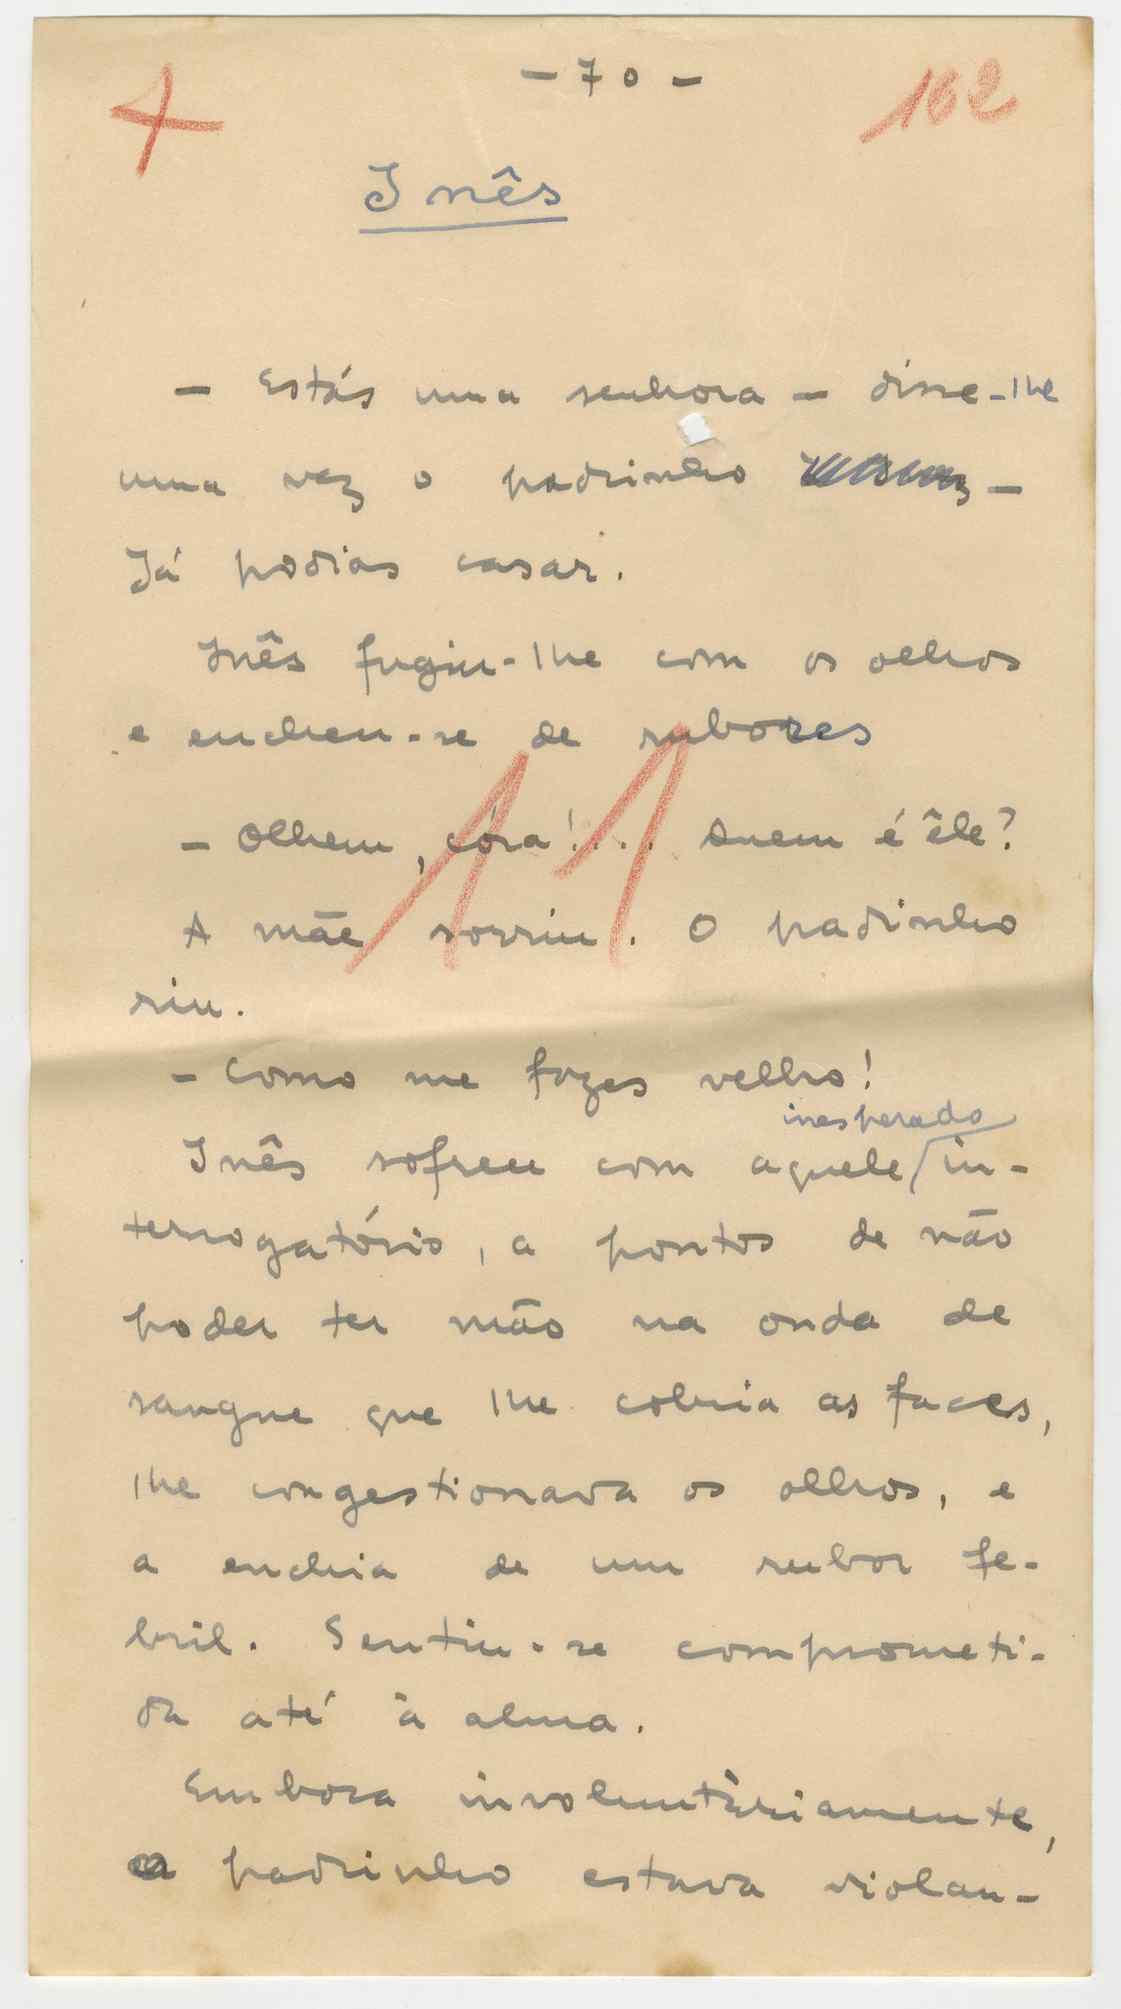 - 70 -
162
Inês
- Estás uma senhora - disse-lhe
uma vez o padrinho -
Já podias casar.
Inês fugiu-lhe com os olhos
e encheu-se de rubores
11
- Olhem, córa!... Quem é êle?
A mãe sorriu. O padrinho
riu.
- Como me fazes velho!
inesperado
Inês sofreu com aquele in-
terrogatório, a pontos de não
poder ter mão na onda de
sangue que lhe cobria as faces,
lhe congestionava os olhos, e
a enchia de um rubor fe-
bril. Sentiu-se comprometi-
da até à alma.
Embora involuntàriamente,
o padrinho estava violan-